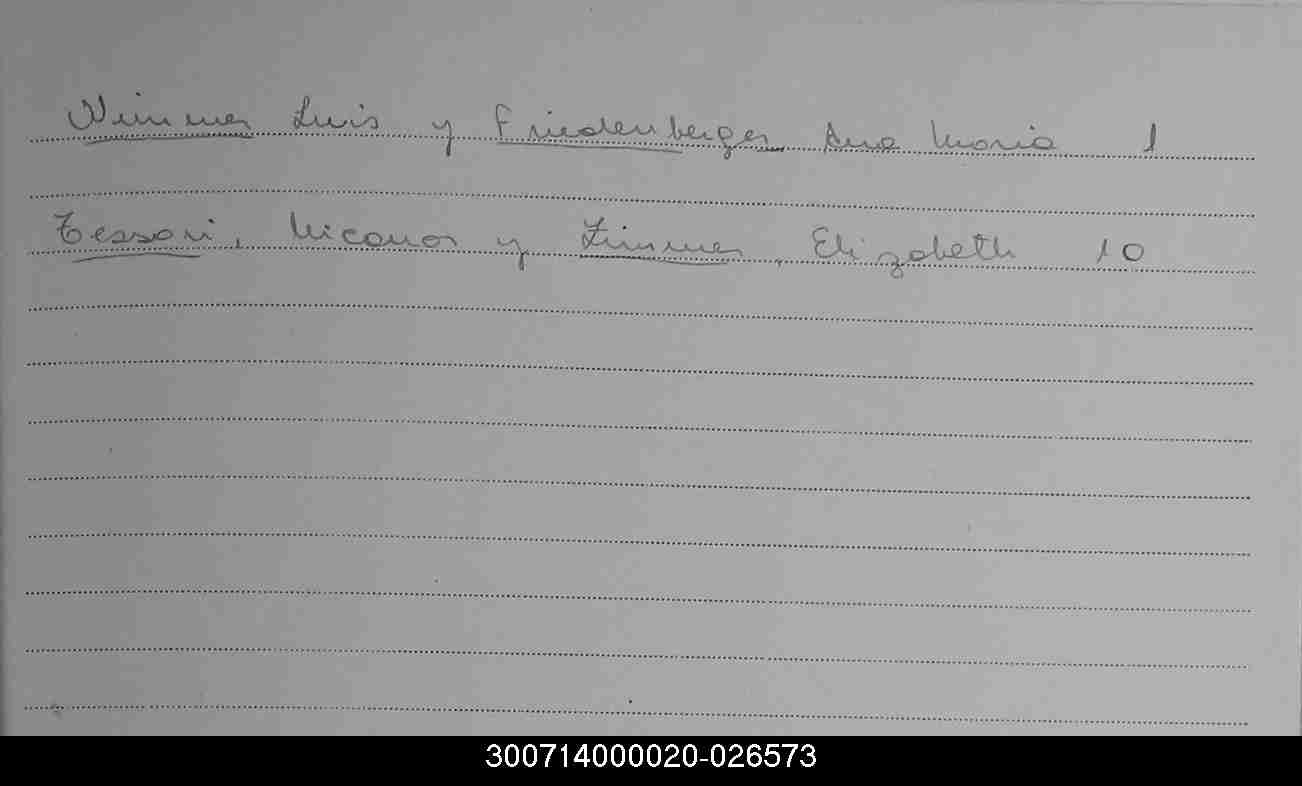 Wimmer Luis y Friedenberger Ana Maria 1
Tessari, Nicanor y Zimmer, Elizabeth 10
300714000020-026573